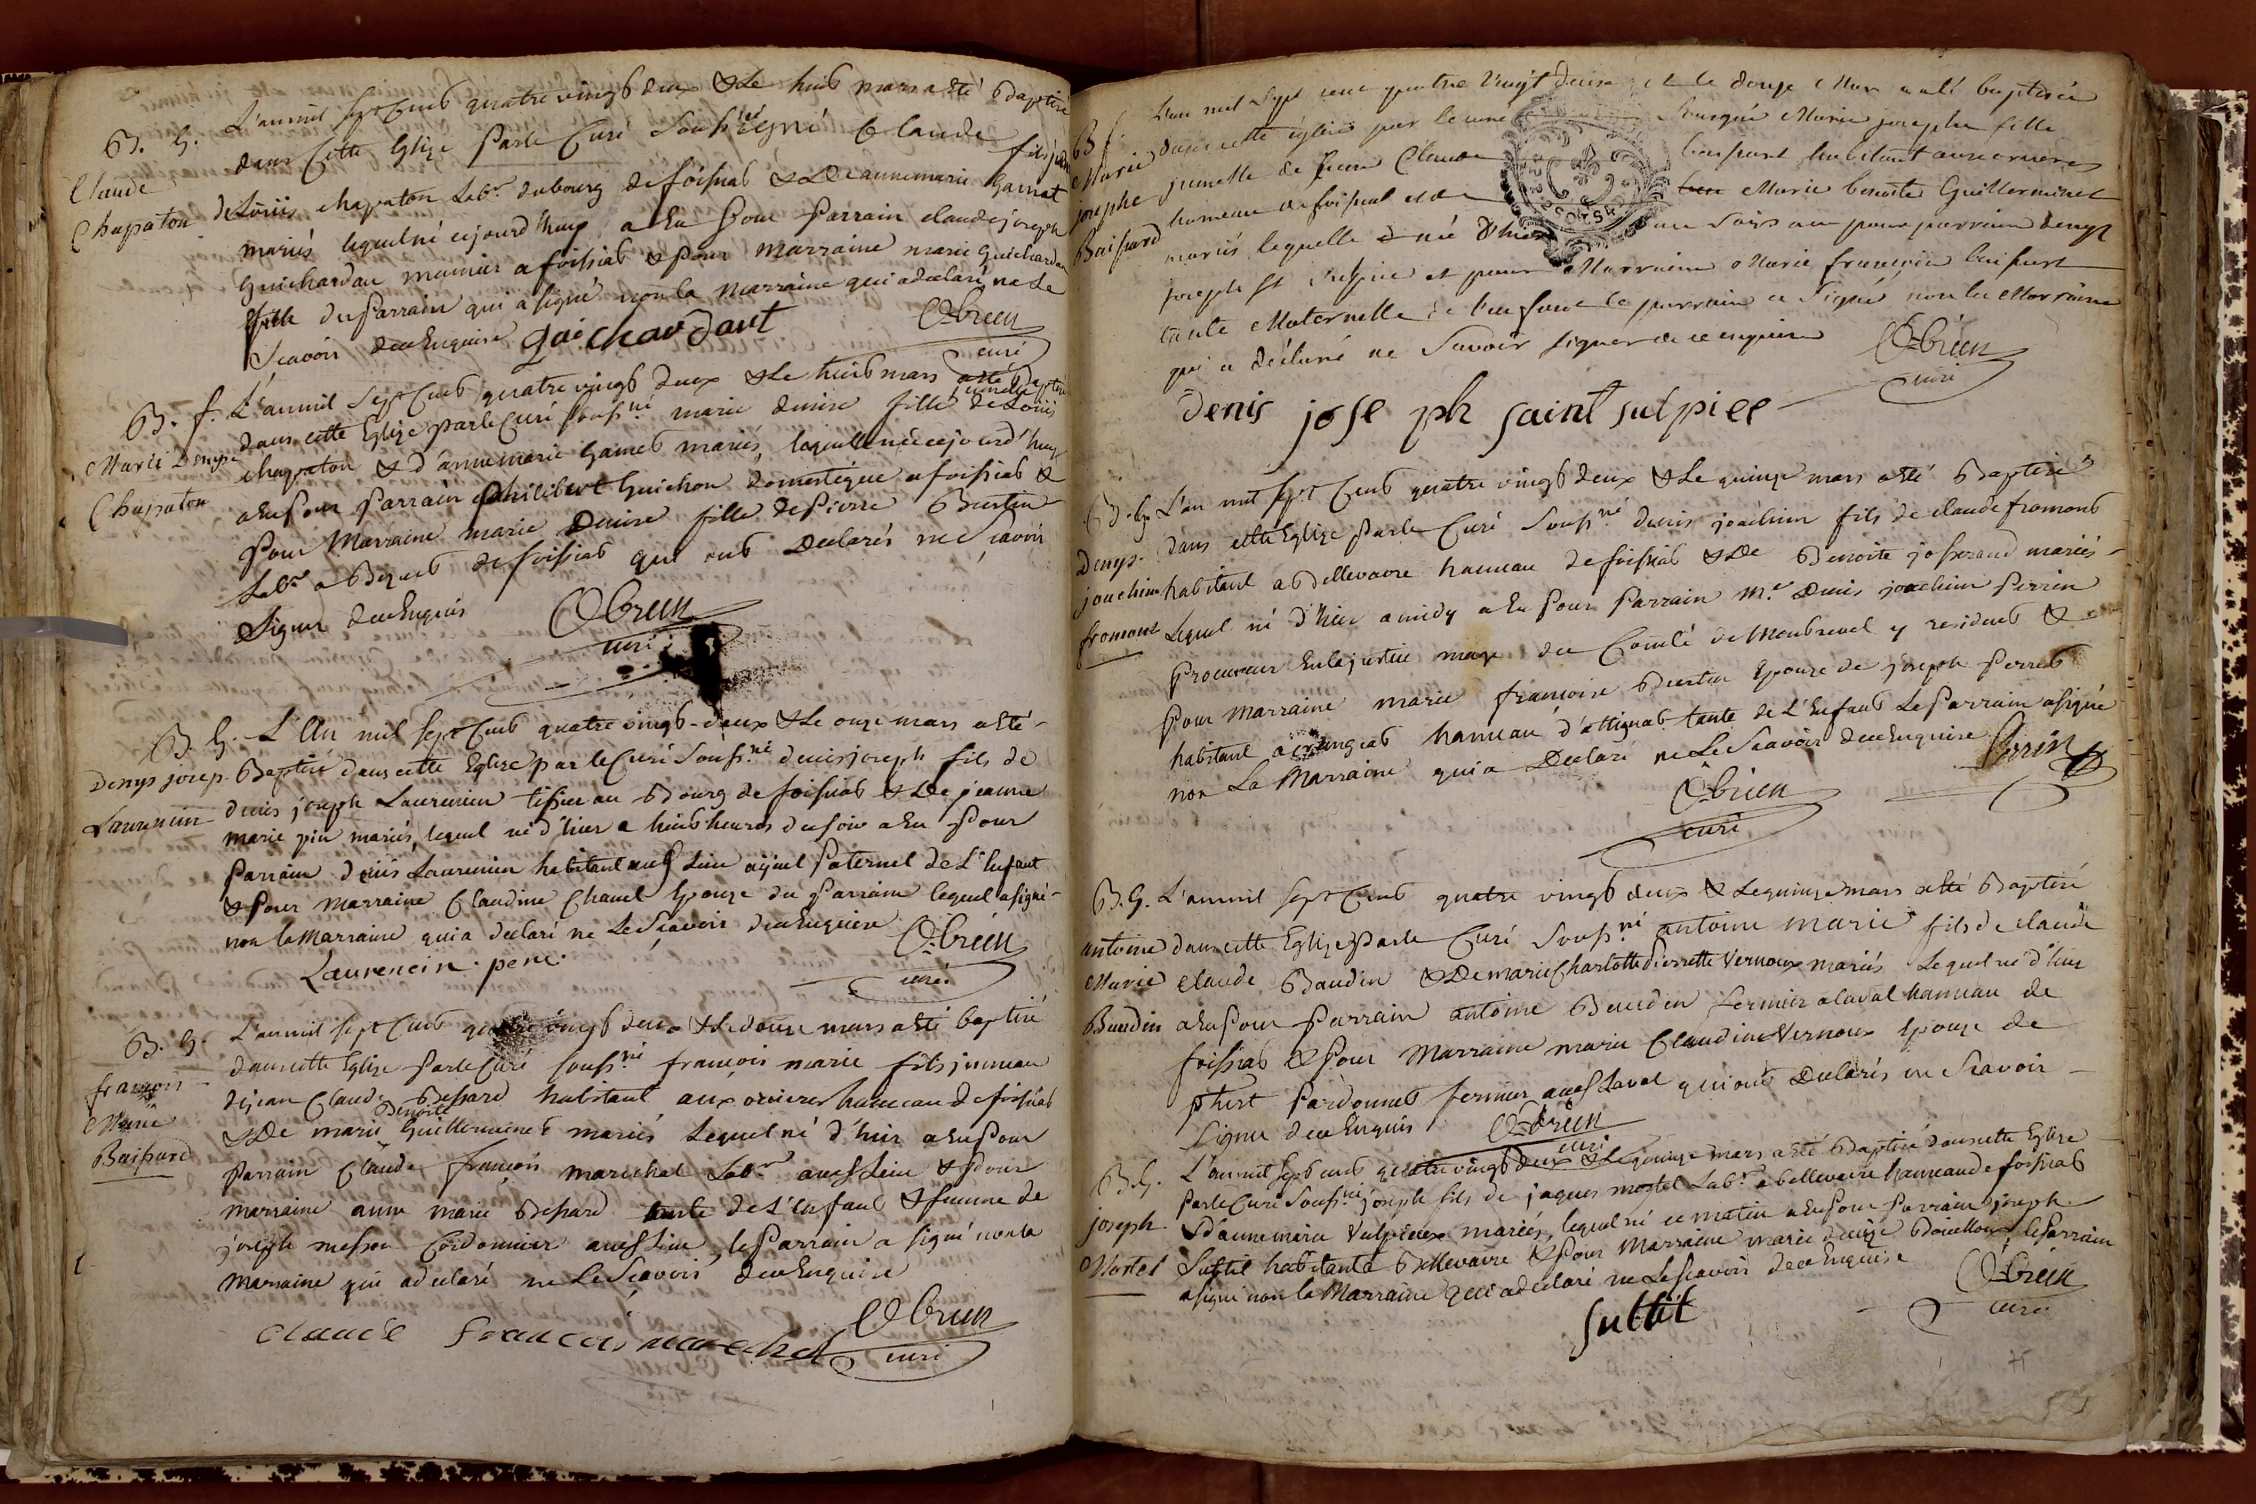 B. G.
Claude
Chapaton
L'an mil sept cents quatre vingts deux & Le huit mars a Eté Baptisé
dans Cette Eglize Par le Curé Soussigné Claude fils jum
de Loüis chapaton Labr. du bourg de foissiat & De anne marie Garnat
mariés lequel né cejourd'huy a Eu Pour Parrain claude joseph
Guichardan meunier a foissiat & Pour Marraine marie Guichardan
fille du Parrain qui a signé non la Marraine qui a declaré ne Le
Scavoir de ce Enquise
guichardant
O-brien
curé
B. f.
Marie Denyse
Chapaton
L'an mil Sept Cents quatre vingts deux & Le huit mars a eté Baptisé
dans cette Eglize par le Curé souss.né marie denise fille jumelle de Loüis
chapaton & d'anne marie Garnet mariés, laquelle née cejourd'huy
a Eu Pour Parrain Philibert Guichon domestique a foissiat &
Pour Marraine marie Denise fille De Pierre Burtin
Labr. a de foissiat qui ont Declarés ne Scavoir
Signer de ce Enquis
O-brien
curé
B. G.
Denys josep.
Laurencin
L'An mil sept Cents quatre vingts-deux & Le onze mars a Eté
Baptisé dans cette Eglize par le Curé Souss.né denis joseph fils de
denis joseph Laurencin tissier au Bourg de foissiat & De jeanne
marie pin mariés, lequel né d'hier a huit heures du soir a Eu Pour
Parrain denis Laurencin habitant aud Lieu ayeul Paternel de L'Enfant
& Pour Marraine Claudine Chanel Epouze du Parrain lequel a signé
non la Marraine qui a declaré ne Le Scavoir de ce Enquise
Laurencin. pere.
O-brien
curé
B. G.
françois
Marie
Baissard
L'an mil sept Cents quatre vingts deux & Le douze mars a Eté baptisé
dans cette Eglize Par le Curé souss.né françois marie fils jumeau
de jean Claude Bessard habitant aux orcieres hameau de foissiat
& De marie Benoite Guillermenet mariés Lequel né d'hier a Eu Pour
Parrain Claude françois marechal Labr. aud Lieu & Pour
Marraine anne marie Bessard tante de L'Enfant & femme de
joseph messon Cordonnier aud Lieu, le Parrain a signé non la
Marraine qui a declaré ne Le Scavoir de ce Enquise
claude francois marechal
O-brien
curé
B f.
Marie
josephe
Baissard
L'an mil sept cent quatre vingt deux et le douze Mars a eté baptisée
dans cette église par le curé Soussigné Marie josephe fille
jumelle de Jean Claude baissard habitant aux orcieres
hameau de foissiat et de Marie benoite Guillermenet
mariés laquelle née d'hier au soir a eu pour parrain denys
joseph St Sulpice et pour Marraine Marie françoise baissard
tante Maternelle de l'enfant le parrain a Signé, non la Marraine
qui a déclaré ne Savoir signer de ce enquise
denis jose ph saint sulpice
O-brien
curé
B. G.
Denys-
joachim
fromont
L'an mil sept Cents quatre vingts deux & Le quinze mars a Eté Baptisé
dans cette Eglize Par le Curé Souss.né denis joachim fils de claude fromont
habitant a Bellevavre hameau de foissiat & De Benoite josserand mariés
Lequel né d'hier a midy a Eu Pour Parrain M.e Denis joachim Perrin
Procureur En la justice mage du Comté de Montrevel y residant &
Pour Marraine marie françoise Burtin Epouze de joseph Perret
habitant a hameau d'attignat tante de L'Enfant Le Parrain a signé
non La Marraine qui a Declaré ne Le Scavoir de ce Enquise
Perrin
O-brien
curé
B. G.
antoine
Marie
Baudin
L'an mil sept Cents quatre vingts deux & Le quinze mars a Eté Baptisé
dans cette Eglize Par le Curé Souss.né antoine marie fils de claude
claude Baudin & De marie Charlotte Pierrette Vernoux mariés Lequel né d'hier
a Eu Pour Parrain antoine Baudin fermier a laval hameau de
foissiat & Pour Marraine marie Claudine Vernoux Epouze de
phert Pardonnet fermier aud Laval qui ont Declarés ne Scavoir
Signer de ce Enquis
O-brien
curé
B. G.
joseph
Mortel
L'an mil sept cents quatre vingts deux & Le quinze mars a Eté Baptisé dans cette Eglize
Par le Curé Souss.né joseph fils de jaques mortel Labr. a bellevavre hameau de foissiat
& D'anne marie Vulpieux mariés, lequel né ce matin a Eu Pour Parrain joseph
Suttit habitant a Bellevavre & Pour Marraine marie denize Bouillon, le Parrain
a signé non la Marraine qui a declaré ne Le Scavoir de ce Enquise
Suttit
O-brien
curé